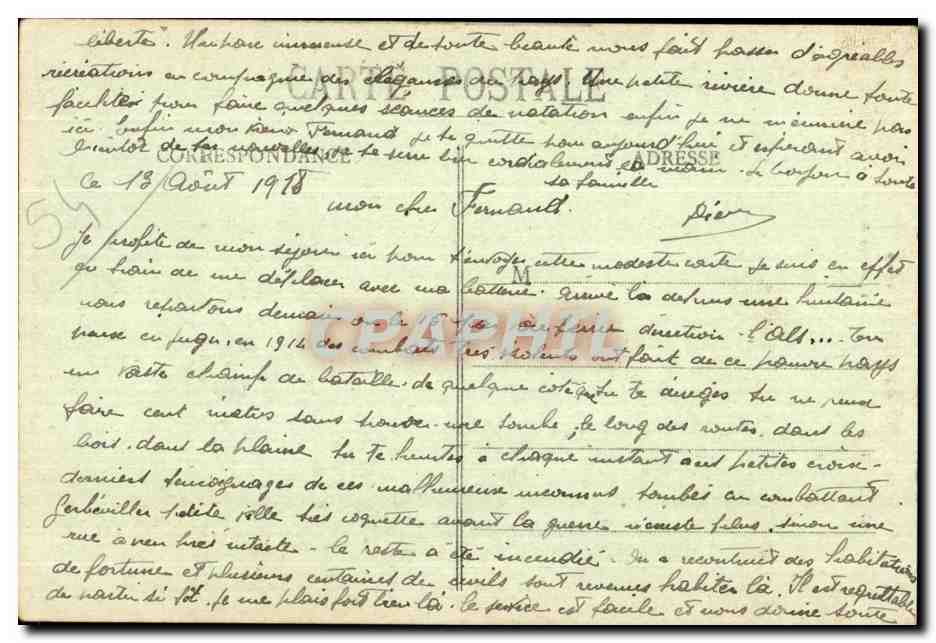 liberté". Un parc immense et de toute beauté nous fait passer d'agréables
récréations en compagnie des élégances du pays. Une petite rivière donne toute
CARTE POSTALE
facilité pour faire quelques séances de natation enfin je ne m'ennuie pas
ici. Enfin mon Fernand je te quitte pour aujourd'hui et espérant avoir
bientôt de tes nouvelles je te serre bien cordialement la main. Le bonjour à toute
ta famille
CORRESPONDANCE
ADRESSE
Ce 13 Août 1915
mon cher Fernand.
Je profite de mon séjour ici pour t'envoyer cette modeste carte je suis en effet
M
en train de me déplacer avec ma batterie. Arrivé là depuis une huitaine
nous repartons demain ou le 15 direction l'Als... Tu
CPAPHIL
penses en juger, en 1914 des combats très violents ont fait de ce pauvre pays
un vaste champ de bataille. de quelque côté que tu te diriges tu ne peux
faire cent mètres sans trouver une tombe, le long des routes, dans les
bois, dans la plaine tu te heurtes à chaque instant à ces petites croix -
derniers témoignages de ces malheureux inconnus tombés en combattant
Gerbéviller petite ville très coquette avant la guerre n'existe plus, sinon une
rue à peu près intacte - le reste a été incendié. On a reconstruit des habitations
de fortune et plusieurs centaines de civils sont revenus habiter là. Il est regrettable
de partir si tôt. Je me plais fort bien là. le service est facile et nous donne toute